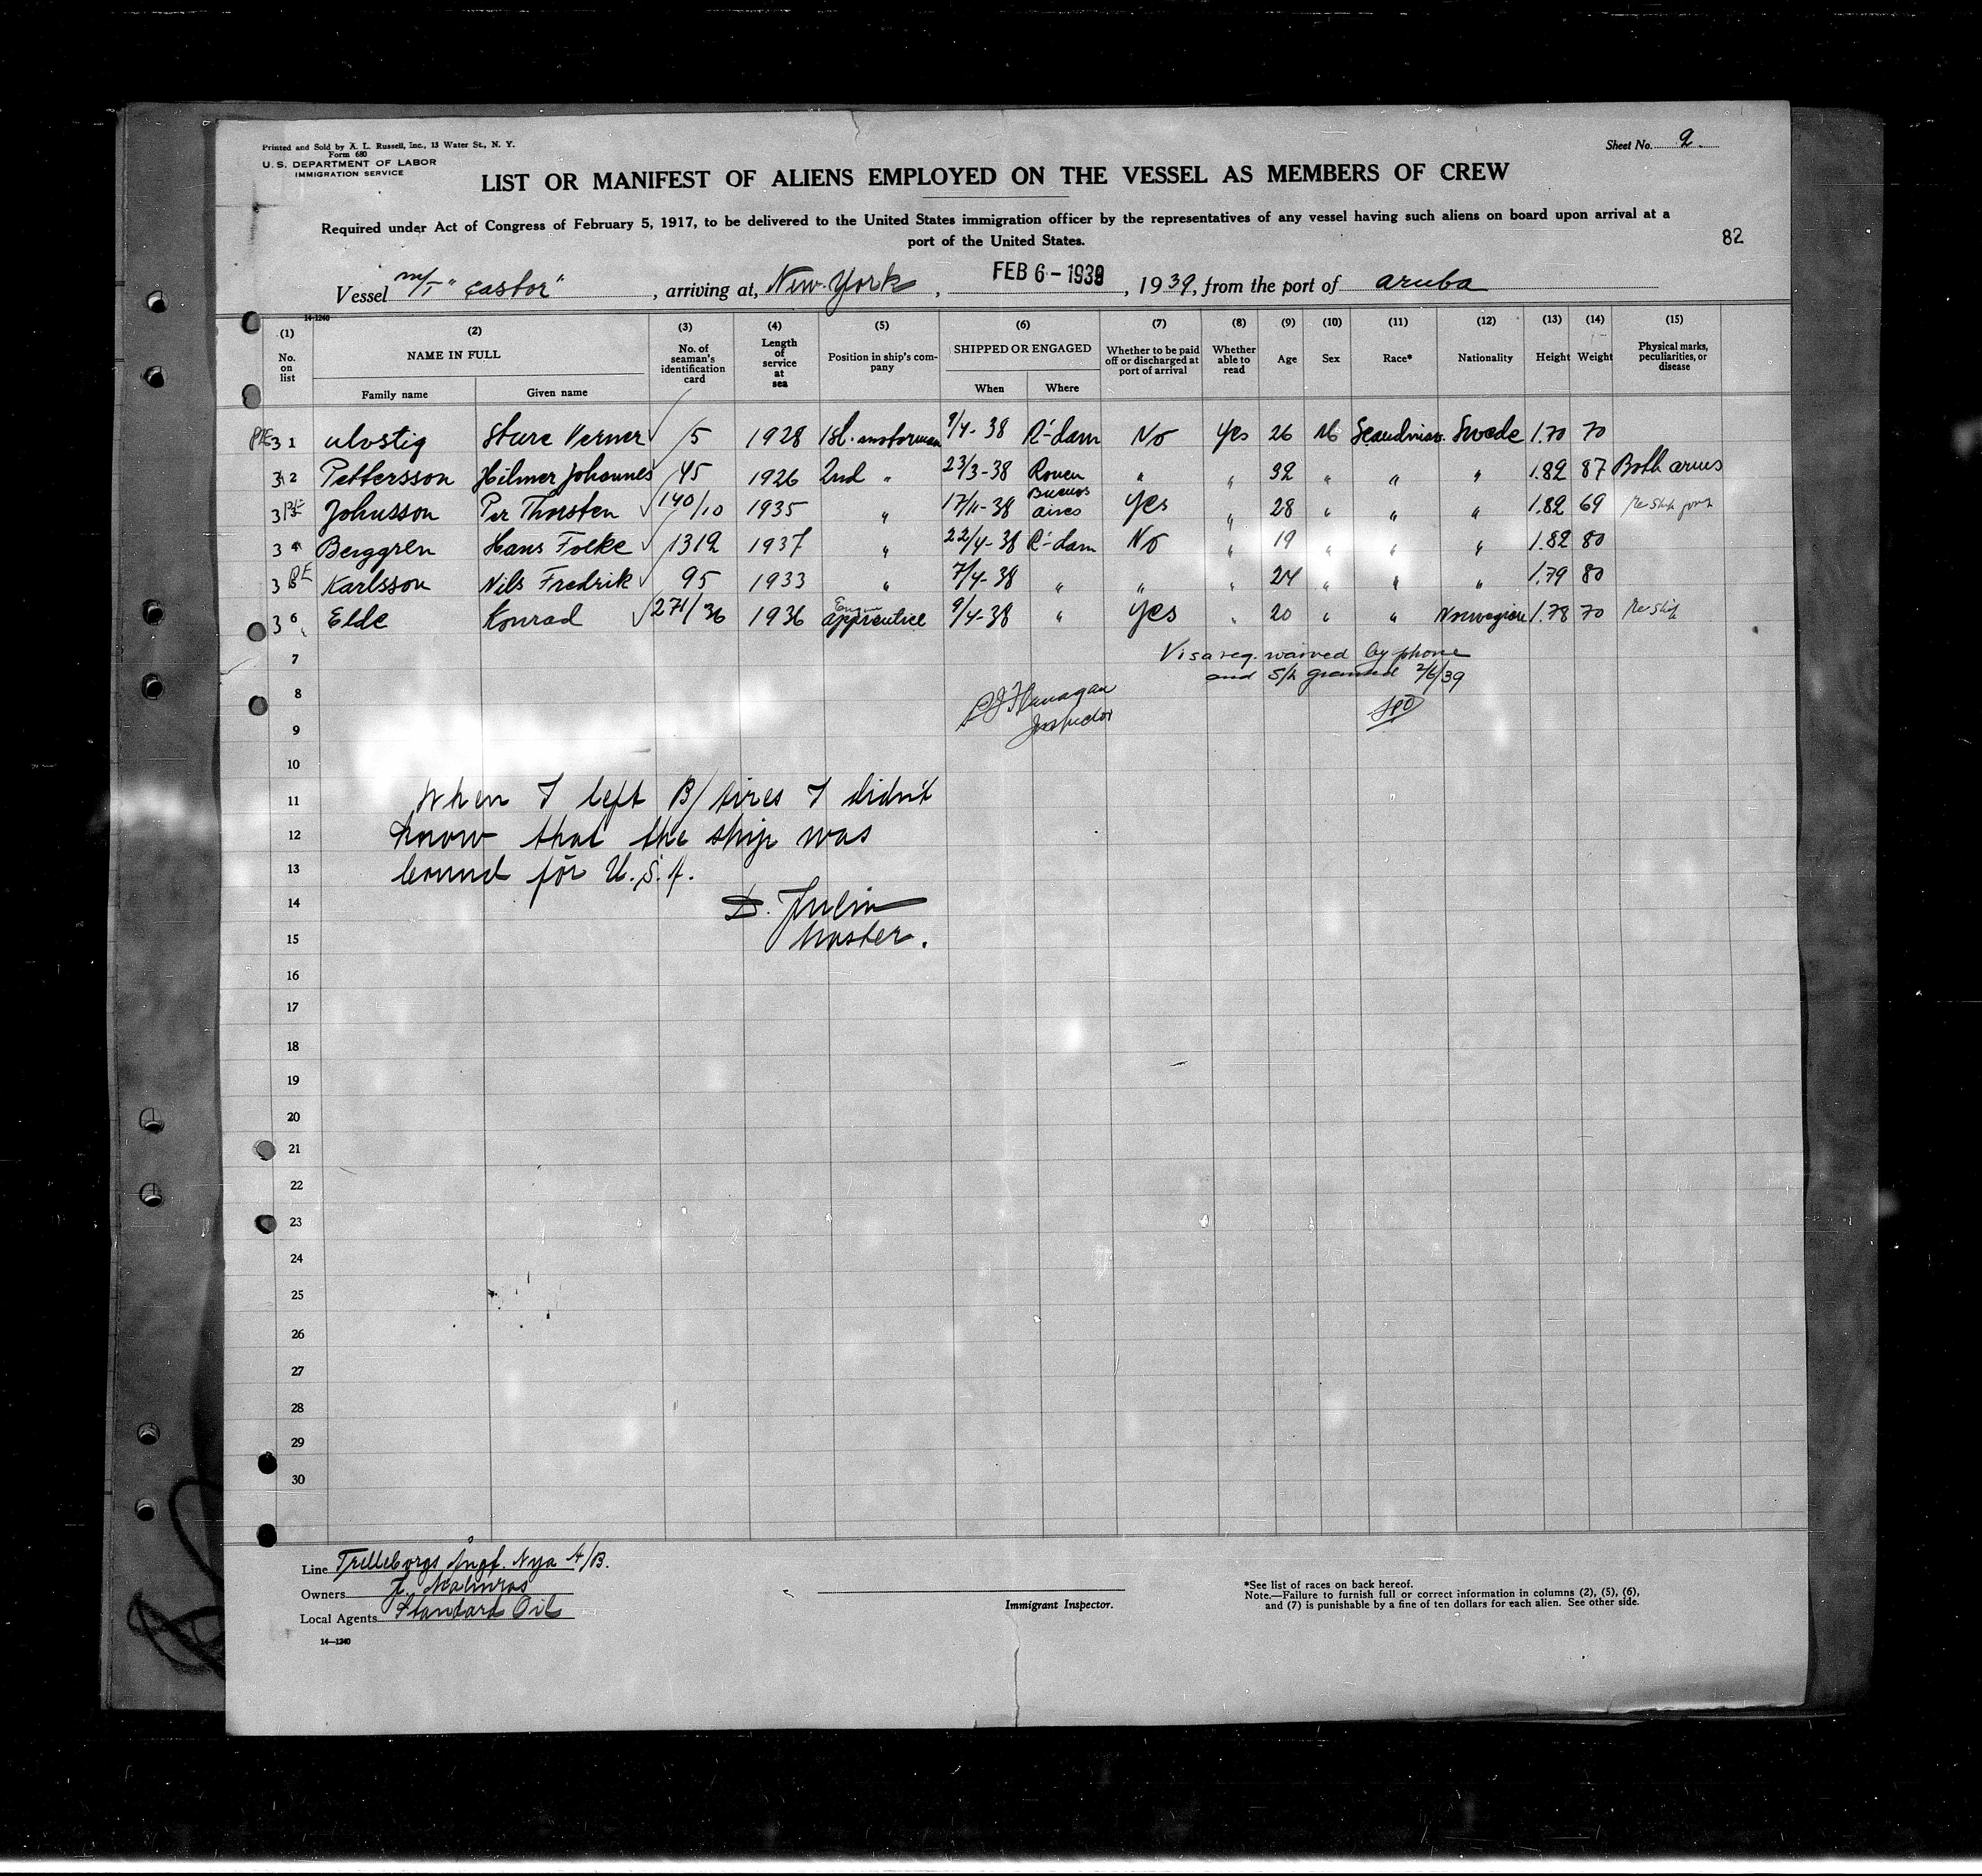 Printed and Sold by A. L. Russell, Inc., 13 Water St., N. Y.
Form 680
U. S. DEPARTMENT OF LABOR
IMMIGRATION SERVICE
Sheet No. 2.
LIST OR MANIFEST OF ALIENS EMPLOYED ON THE VESSEL AS MEMBERS OF CREW
Required under Act of Congress of February 5, 1917, to be delivered to the United States immigration officer by the representatives of any vessel having such aliens on board upon arrival at a
port of the United States.
82
Vessel m/T "Castor", arriving at, New-York, FEB 6 - 1939, 1939, from the port of Aruba
14-1240
(1) No. on list
(2) NAME IN FULL Family name Given name
(3) No. of seaman's identification card
(4) Length of service at sea
(5) Position in ship's company
(6) SHIPPED OR ENGAGED When Where
(7) Whether to be paid off or discharged at port of arrival
(8) Whether able to read
(9) Age
(10) Sex
(11) Race*
(12) Nationality
(13) Height
(14) Weight
(15) Physical marks, peculiarities, or disease
31 Ulvstig Sture Verner 15 1928 1st. motorman 9/4-38 R'dam No Yes 26 M Scandinav. Swede 1.70 70
32 Pettersson Hilmer Johannes 45 1926 2nd " 23/3-38 Rouen " " 32 " " " 1.82 87 Both arms
3 Johnsson Per Thorsten 140/10 1935 " 17/11-38 Buenos Aires Yes " 28 " " " 1.82 69
34 Berggren Hans Folke 1312 1937 " 22/4-38 R'dam No " 19 " " " 1.82 80
3 Karlsson Nils Fredrik 95 1933 " 7/4-38 " " " 24 " " " 1.79 80
36 Elde Konrad 271/36 1936 Engine apprentice 9/4-38 " Yes " 20 " " Norwegian 1.78 70 Re Ship
7
Visa req. waived by phone
and S/L granted 2/6/39
8
Flanagan
Inspector
9
10
11 When I left B/Aires I didn't
12 know that the ship was
13 bound for U.S.A.
14
15 Master.
16
17
18
19
20
21
22
23
24
25
26
27
28
29
30
Line Trelleborgs Ångf. Nya A/B.
Owners Malmros
Local Agents Standard Oil
14—1240
Immigrant Inspector.
*See list of races on back hereof.
Note.—Failure to furnish full or correct information in columns (2), (5), (6),
and (7) is punishable by a fine of ten dollars for each alien. See other side.